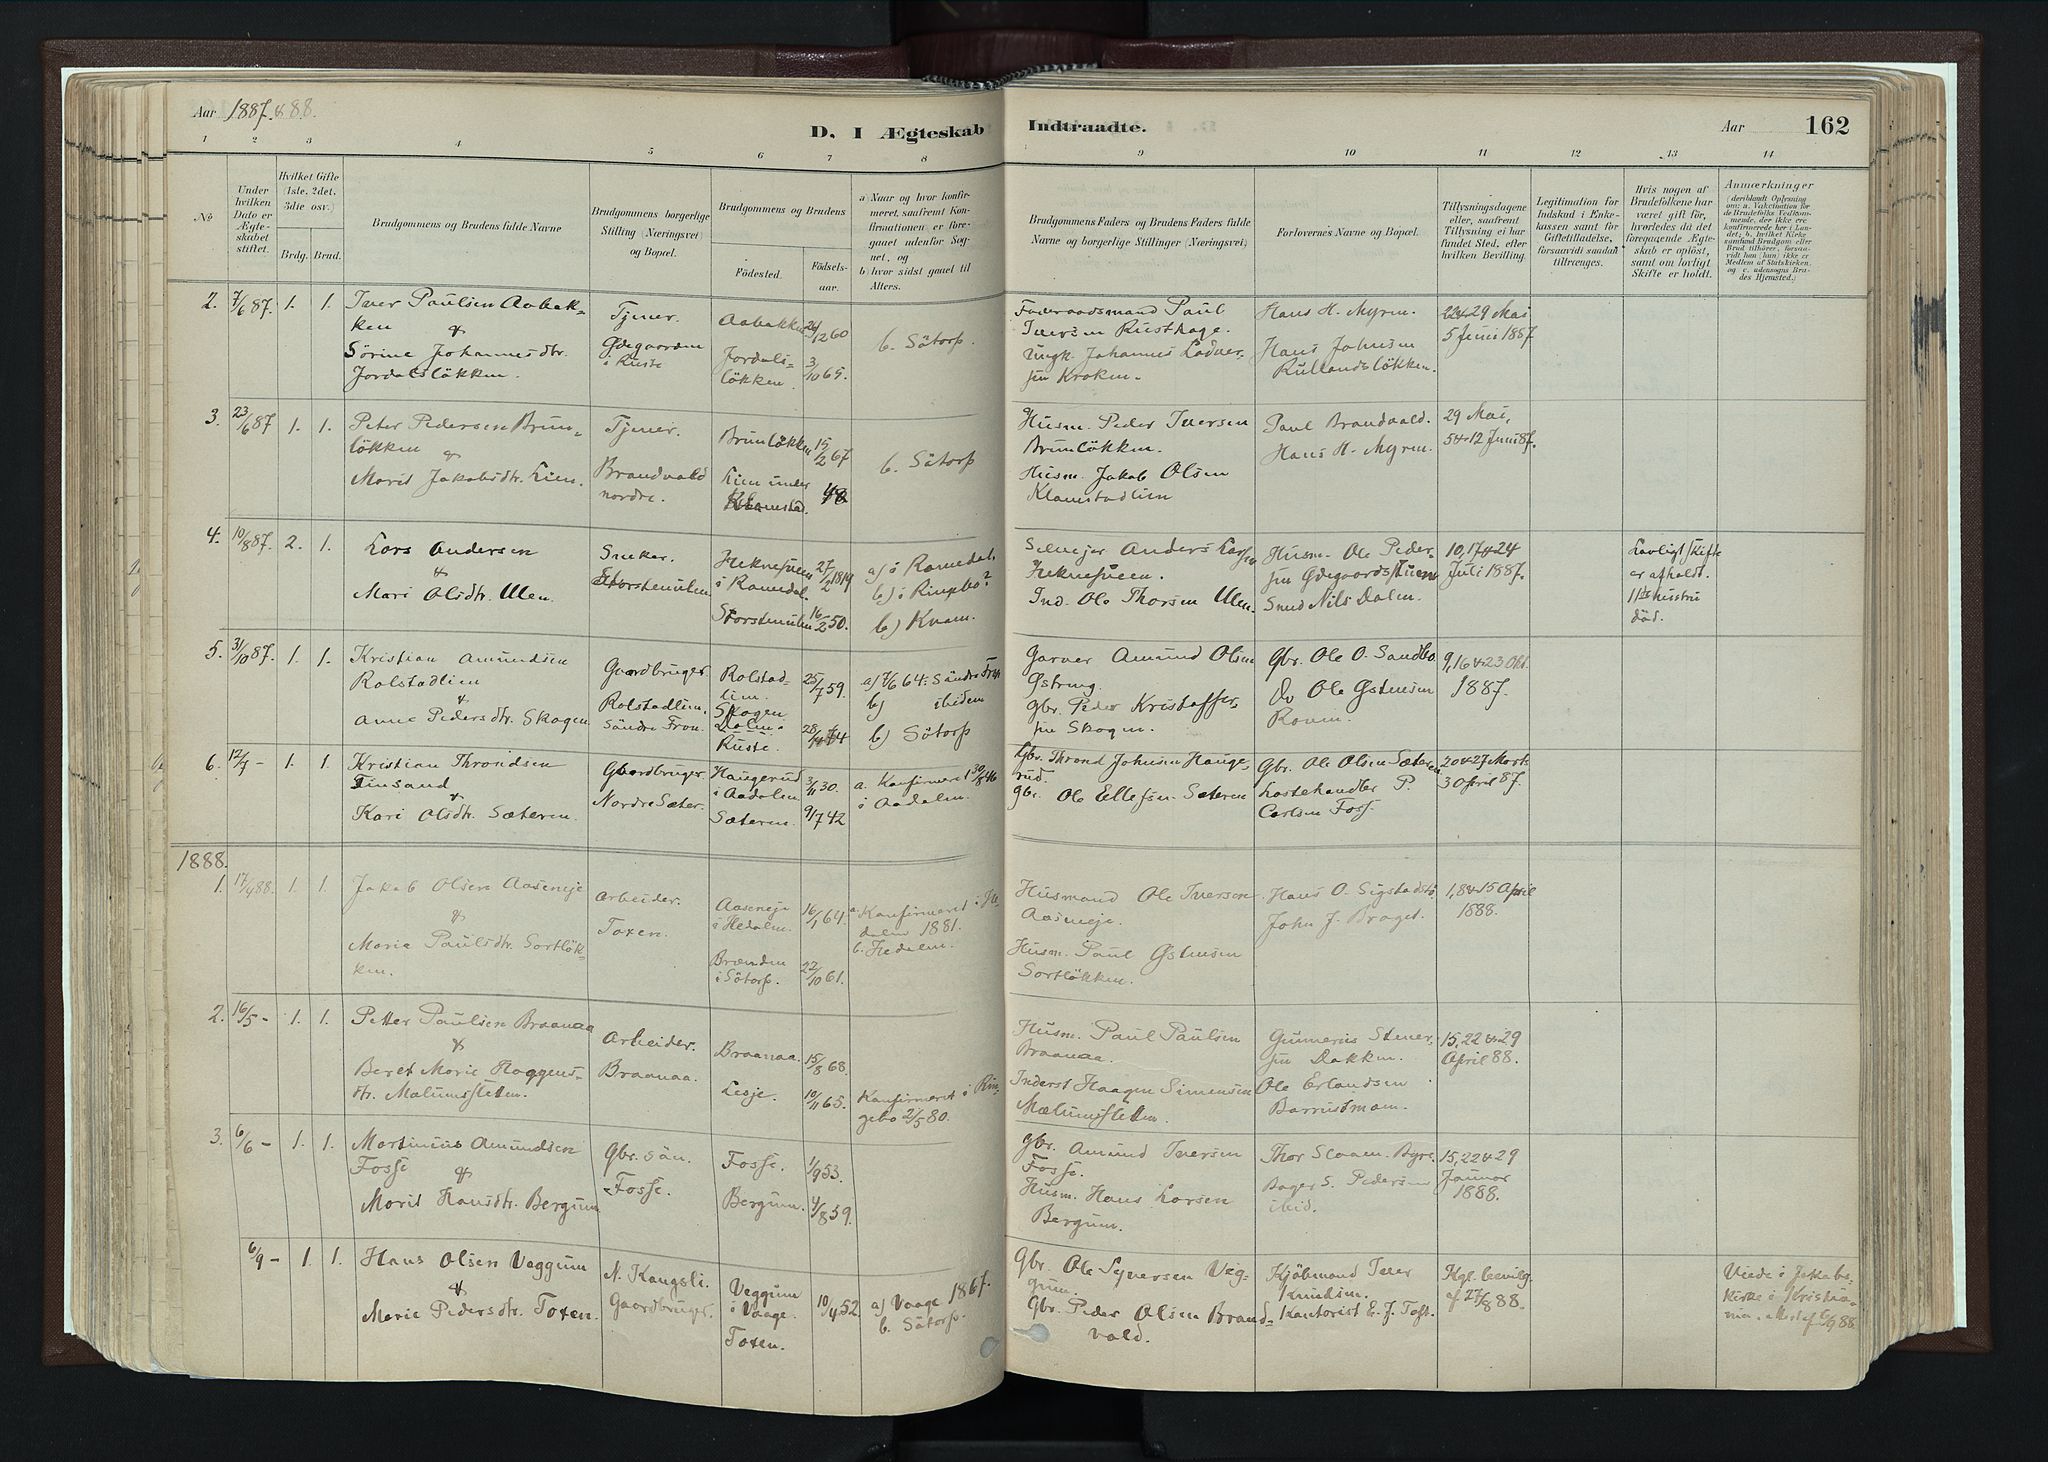 Aar 1887 & 88.
D. I Ægteskab Indtraadte.
Aar 162
1 2 3 4 5 6 7 8 9 10 11 12 13 14
No
Under hvilken Dato er Ægteskabet stiftet.
Hvilket Gifte (1ste, 2det, 3die osv.)
Brdg. Brud.
Brudgommens og Brudens fulde Navne
Brudgommens borgerlige Stilling (Næringsvei) og Bopæl.
Brudgommens og Brudens
Fødested. Fødselsaar.
a) Naar og hvor konfirmeret, saafremt Konfirmationen er foregaaet udenfor Sognet, og
b) hvor sidst gaaet til Alters.
Brudgommens Faders og Brudens Faders fulde Navne og borgerlige Stillinger (Næringsvei)
Forlovernes Navne og Bopæl.
Tillysningsdagene eller, saafremt Tillysning ei har fundet Sted, efter hvilken Bevilling.
Legitimation for Indskud i Enkekassen samt for Giftetilladelse, forsaavidt saadan tiltrænges.
Hvis nogen af Brudefolkene har været gift for, hvorledes da det foregaaende Ægteskab er opløst, samt om lovligt Skifte er holdt.
Anmærkninger
2. 7/6 87. 1. 1.
Iver Paulsen Aabakken
&
Sörine Johannesdtr.
Jordalslökken.
Tjener.
Ødegaarden
i Ruste
Aabakken 24/12 60
Jordalslökken. 3/10 65.
b. Sötorp.
Föderaadsmand Paul
Iversen Rusthage.
Ungk. Johannes
Kroken.
Hans H. Myren.
Hans Johnsen
Rullandslökken.
22 & 29 Mai
5 Juni 1887
3. 23/6 87 1. 1.
Peter Pedersen Brunlökken
&
Marit Jakobsdtr. Lien.
Tjener.
Brandvold
nordre.
Brunlökken 15/2 67
Lien under
Klamstad. 48
b. Sötorp
Husm. Peder Iversen
Brunlökken.
Husm. Jakob Olsen
Klamstadlien
Paul Brandvold.
Hans H. Myren.
29 Mai,
5 & 12 Juni 87.
4. 10/8 87. 2. 1.
Lars Andersen
&
Mari Olsdtr. Ulen.
Sneker.
Storstenulen.
Heknesveen
i Romedal. 27/2 1819
Storstenulen 16/2 50.
a) i Romedal.
b) i Ringebo?
b) Kvam.
Selveier Anders Larsen
Heknesveen.
Ind. Ole Thorsen Ulen.
Husm. Ole Pedersen
Ødegaardsstuen
Smed Nils Dalen.
10, 17 & 24
Juli 1887.
Lovligt Skifte
er afholdt.
1ste hustru
död.
5. 31/10 87. 1. 1.
Kristian Amundsen
Rolstadlien
&
Anne Pedersdtr. Skogen
Gaardbruger
Rolstadlien.
Söndre Fron.
Rolstadlien. 25/7 59.
Skogen
Dalen i
Ruste. 64
a) 7/6 64: Söndre Fron
b) ibidem
b) Sötorp
Garver Amund Olsen
Østeng.
Gbr. Peder Kristoffersen
Skogen.
Gbr. Ole O. Sandbo
Do Ole Østensen
9, 16 & 23 Okt.
1887.
6. 12/7 - 1. 1.
Kristian Throndsen
Finsand
&
Kari Olsdtr. Sæteren.
Gaardbruger
Nordre Sæter.
Haugerud
i Aadalen. 3/11 30.
Sæteren. 9/7 42
a. Konfirmeret 30/8 46
i Aadalen.
Gbr. Thrond Johnsen Haugerud.
Gbr. Ole Ellefsen Sæteren
Gbr. Ole Olsen Sæteren
Lostehandler P.
Carlsen Foss.
20 & 27 Mart.
3 April 87.
1888.
1. 17/4 88. 1. 1.
Jakob Olsen Aaseneje
&
Marie Paulsdtr. Sortlökken.
Arbeider.
Toxen.
Aaseneje
i Hedalen. 16/1 64.
Brænden
i Sötorp. 22/10 61.
a. Konfirmeret i Hedalen 1881.
b. Hedalen.
Husmand Ole Iversen
Aaseneje.
Husm. Paul Østensen
Sortlökken.
Hans O. Sigstadstö
John J. Braget.
1, 8 & 15 April
1888.
2. 16/5 - 1. 1.
Petter Paulsen Braanaa
&
Beret Marie Haagensdtr. Mælumssletten.
Arbeider.
Braanaa.
Braanaa. 15/8 68.
Lesje. 10/11 65.
Konfirmeret i Ringebo 2/5 80.
Husm. Paul Paulsen
Braanaa.
Inderst Haagen Simensen
Mælumssletten.
Gunnerius Stenersen
Bakken.
Ole Erlandsen
15, 22 & 29
April 88.
3. 6/6 - 1. 1.
Martinius Amundsen
Fosse
&
Marit Hansdtr. Bergum
Gbr. sön.
Fosse.
Fosse. 1/9 53.
Bergum. 4/8 59.
Gbr. Amund Iversen
Fosse.
Husm. Hans Larsen
Bergum.
Bager S. Pedersen
ibid.
15, 22 & 29
Januar
1888.
6/9 - 1. 1.
Hans Olsen Veggum
&
Marie Pedersdtr. Toxen.
N. Kongsli.
Gaardbruger.
Veggum
i Vaage. 10/4 52
Toxen.
a) Vaage 1867.
b. Sötorp.
Gbr. Ole Syversen Veggum.
Gbr. Peder Olsen Brandvold.
Kjöbmand Iver
Knudsen.
Kontorist E. J. Toft.
Kgl. bevilg.
af 27/8 88.
Viede i Jakobs-
kirke i Kristia-
nia. Attest af 6/9 88.